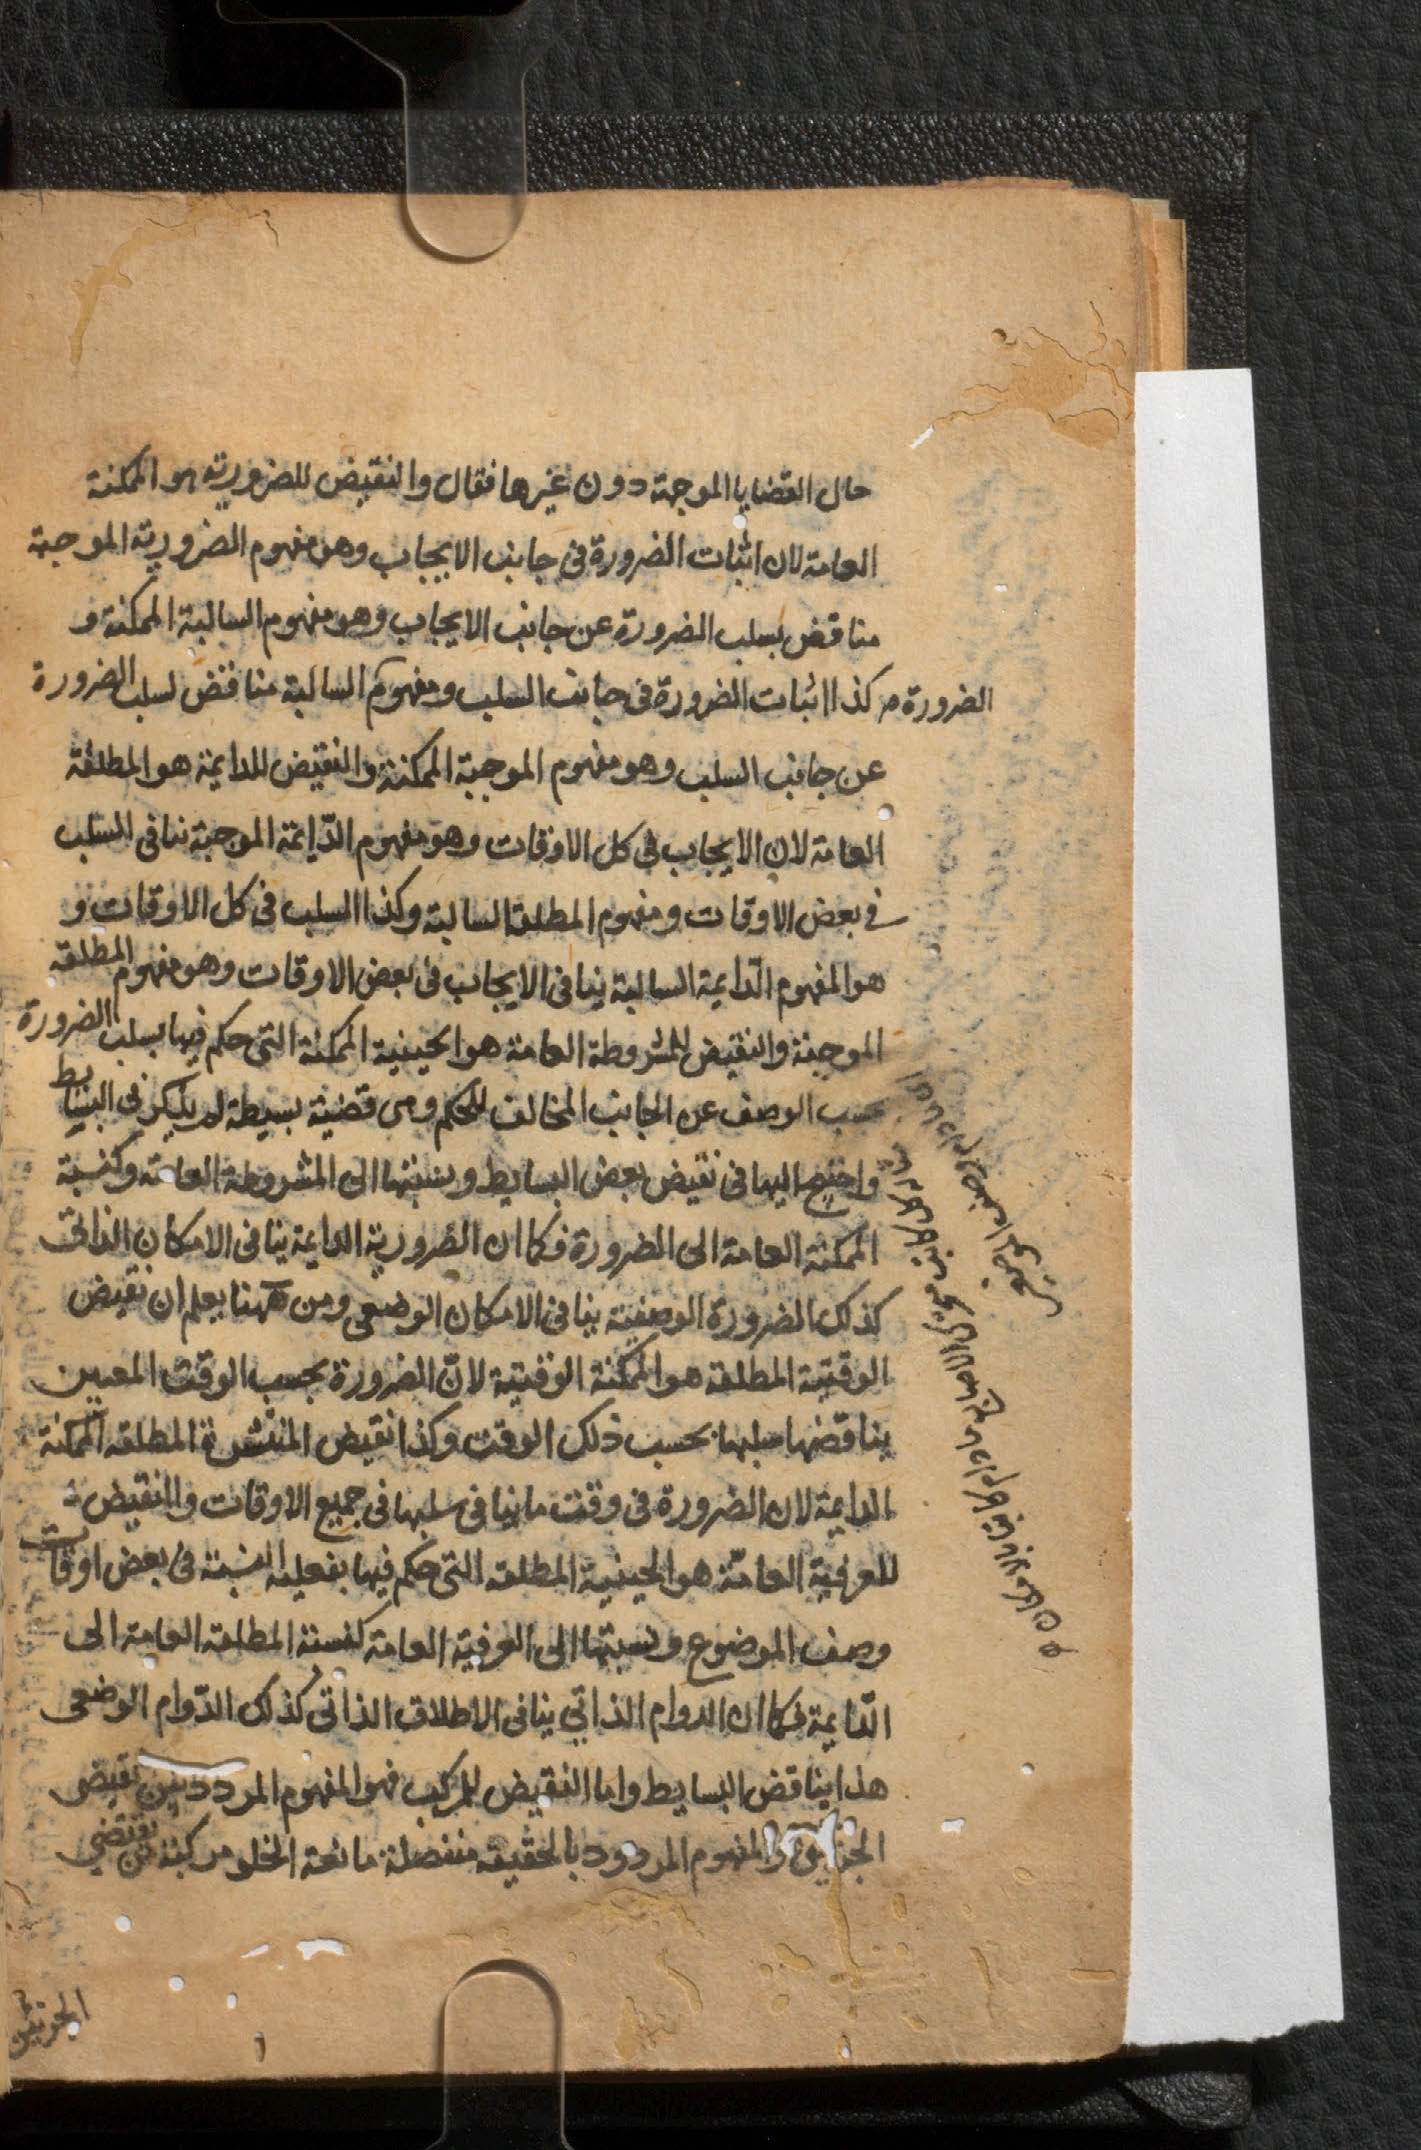 حال القضايا الموجهة دون غيرها فقال والنقيض للضرورية هو الممكنة
العامة لان اثبات الضرورة فى جانب الايجاب وهو مفهوم الضرورية الموجبة
مناقض بسلب الضرورة عن جانب الايجاب وهو مفهوم السالبة الممكنة و
الضرورة م كذا اثبات الضرورة فى جانب السلب ومفهوم السالبة مناقض لسلب الضرورة
عن جانب السلب وهو مفهوم الموجبة الممكنة والنقيض للدايمة هو المطلقة
العامة لان الايجاب فى كل الاوقات وهو مفهوم الدّايمة الموجبة ينافى السّلب
فى بعض الاوقات ومفهوم المطلقة السالبة وكذا السلب فى كل الاوقات و
هو المفهوم الدّايمة السالبة ينافى الايجاب فى بعض الاوقات وهو مفهوم المطلقة
الموجبة والنقيض للمشروطة العامة هو الحينية الممكنة التى حكم فيها بسلب الضرورة
بحسب الوصف عن الجانب المخالف للحكم وهى قضية بسيطة لم يذكر فى البسايط
واحتيج اليها فى نقيض بعض البسايط ونسبتها الى المشروطة العامة كنسبة
الممكنة العامة الى الضرورة فكما ان الضرورية الدايمة ينافى الامكان الذاتى
كذلك الضرورة الوصفية ينافى الامكان الوضعى ومن ههنا يعلم ان نقيض
الوقتية المطلقة هو الممكنة الوقتية لانّ الضرورة بحسب الوقت المعين
يناقضها سلبها بحسب ذلك الوقت وكذا نقيض المنتشرة المطلقة الممكنة
الدايمة لان الضرورة فى وقت ما ينافى سلبها فى جميع الاوقات والنقيض
للعرفية العامّة هو الحينية المطلقة التى حكم فيها بفعلية النسبة فى بعض اوقات
وصف الموضوع ونسبتها الى العرفية العامة كنسبة المطلقة العامة الى
الدّايمة فكما ان الدوام الذاتي ينافى الاطلاق الذاتى كذلك الدّوام الوضعى
هذا يناقض البسايط واما النقيض للمركب فهو المفهوم المردد بين نقيضى
الجزئين والمفهوم المردود بالحقيقة منفصلة مانعة الخلو مركبة من نقيضي
الجزئين